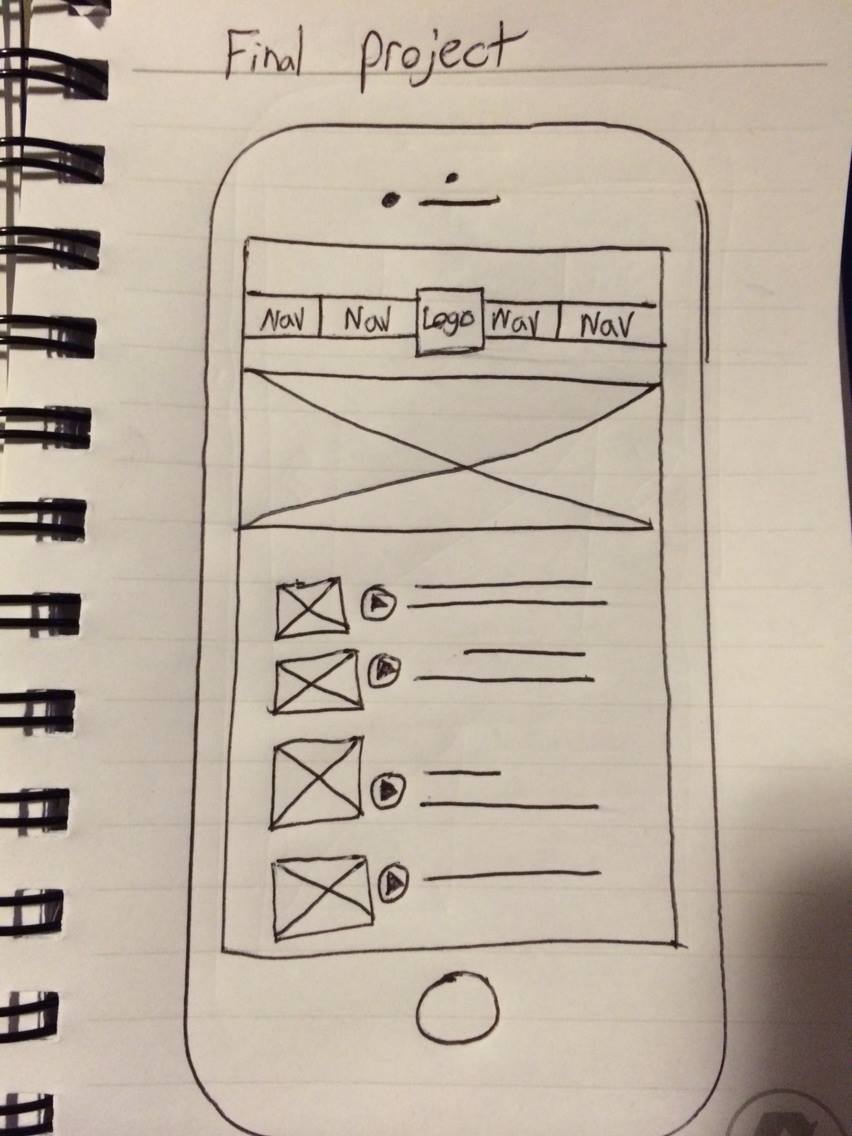 Final project
Nav Nav Logo Nav Nav